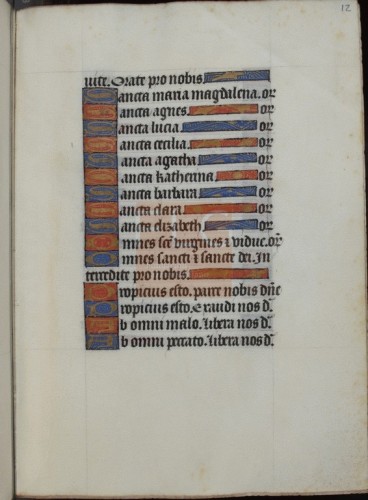 12
uite. Orate pro nobis
Sancta maria magdalena. or
Sancta agnes. or
Sancta lucia or
Sancta cecilia. or
Sancta agatha or
Sancta katherina. or
Sancta barbara or
Sancta clara or
Sancta elizabeth or
Omnes scē uirgines ⁊ uidue. or̄
Omnes sancti ⁊ sancte dei. In
tercedite pro nobis.
Propicius esto. parce nobis dn̄e
Propicius esto. Exaudi nos d̄.
Ab omni malo. Libera nos d̄.
Ab omni peccato. Libera nos d̄.